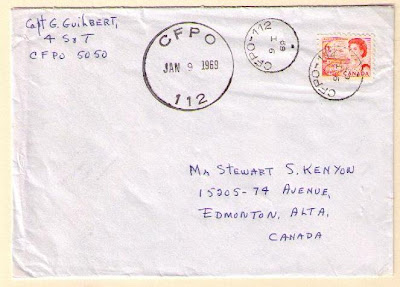 Capt G. Guilbert,
4 S&T
CFPO 5050
CFPO
JAN 9 1969
112
CFPO-112
I 9
69
CANADA
CFPO-112
I 9
MR STEWART S. KENYON
15205-74 AVENUE,
EDMONTON, ALTA,
CANADA